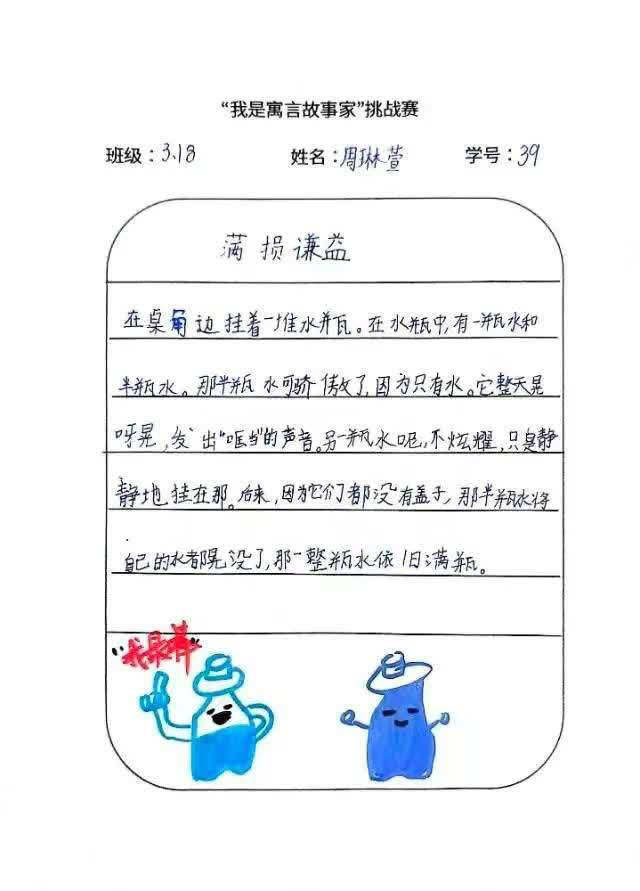 “我是寓言故事家”挑战赛
班级：3.18 姓名：周琳萱 学号：39
满损谦益
在桌角边挂着一堆水瓶。在水瓶中，有一瓶水和
半瓶水。那半瓶水可骄傲了，因为只有水。它整天晃
呀晃，发出“哐当”的声音。另一瓶水呢，不炫耀，只是静
静地挂在那。后来，因为它们都没有盖子，那半瓶水将
自己的水都晃没了，那一整瓶水依旧满瓶。
“我最棒”